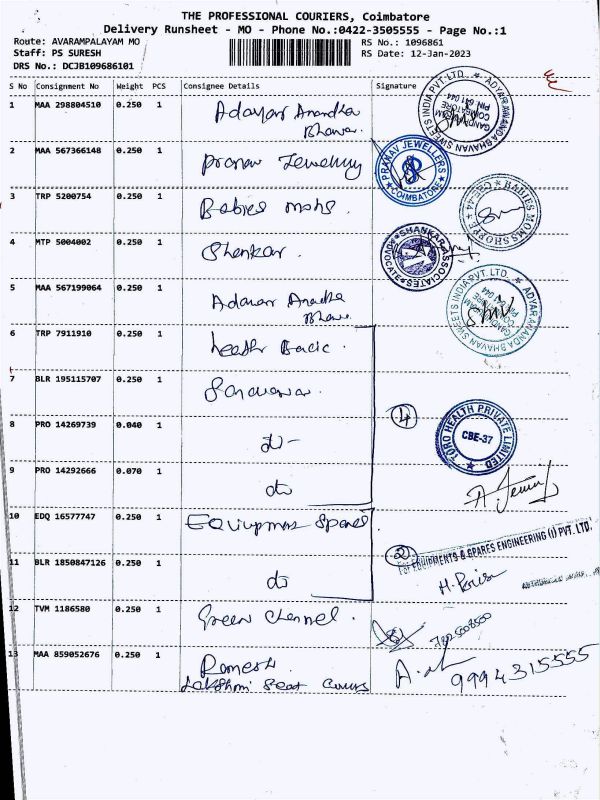 THE PROFESSIONAL COURIERS, Coimbatore
Delivery Runsheet - MO - Phone No.:0422-3505555 - Page No.:1
Route: AVARAMPALAYAM MO RS No.: 1096861
Staff: PS SURESH RS Date: 12-Jan-2023
DRS No.: DCJB109686101
S No Consignment No Weight PCS Consignee Details Signature
1 MAA 298804510 0.250 1 Adayar Anandha
Bhavan.
2 MAA 567366148 0.250 1 Pranav Jewellery
PRANAV JEWELLERS
COIMBATORE
3 TRP 5200754 0.250 1 Babies moms.
BABIES MOMS SHOPPE
4 MTP 5004002 0.250 1 Shenkar.
SHANKAR ASSOCIATES
ADVOCATE
5 MAA 567199064 0.250 1 Adavar Anandha
Bhava.
ADYAR ANANDA BHAVAN SWEETS INDIA PVT. LTD.
6 TRP 7911910 0.250 1
7 BLR 195115707 0.250 1
8 PRO 14269739 0.040 1 do -
4
TORO HEALTH PRIVATE LIMITED
CBE-37
9 PRO 14292666 0.070 1 do
10 EDQ 16577747 0.250 1 Equipmas Spares
2
For EQUIPMENTS & SPARES ENGINEERING (I) PVT. LTD.
11 BLR 1850847126 0.250 1 do
12 TVM 1186580 0.250 1 Green Channel.
13 MAA 859052676 0.250 1 Ramesh.
Lakshmi Seat Covers
9994315555
ADYAR ANANDA BHAVAN SWEETS INDIA PVT. LTD.
GANDHIPURAM
COIMBATORE
PIN 641 044